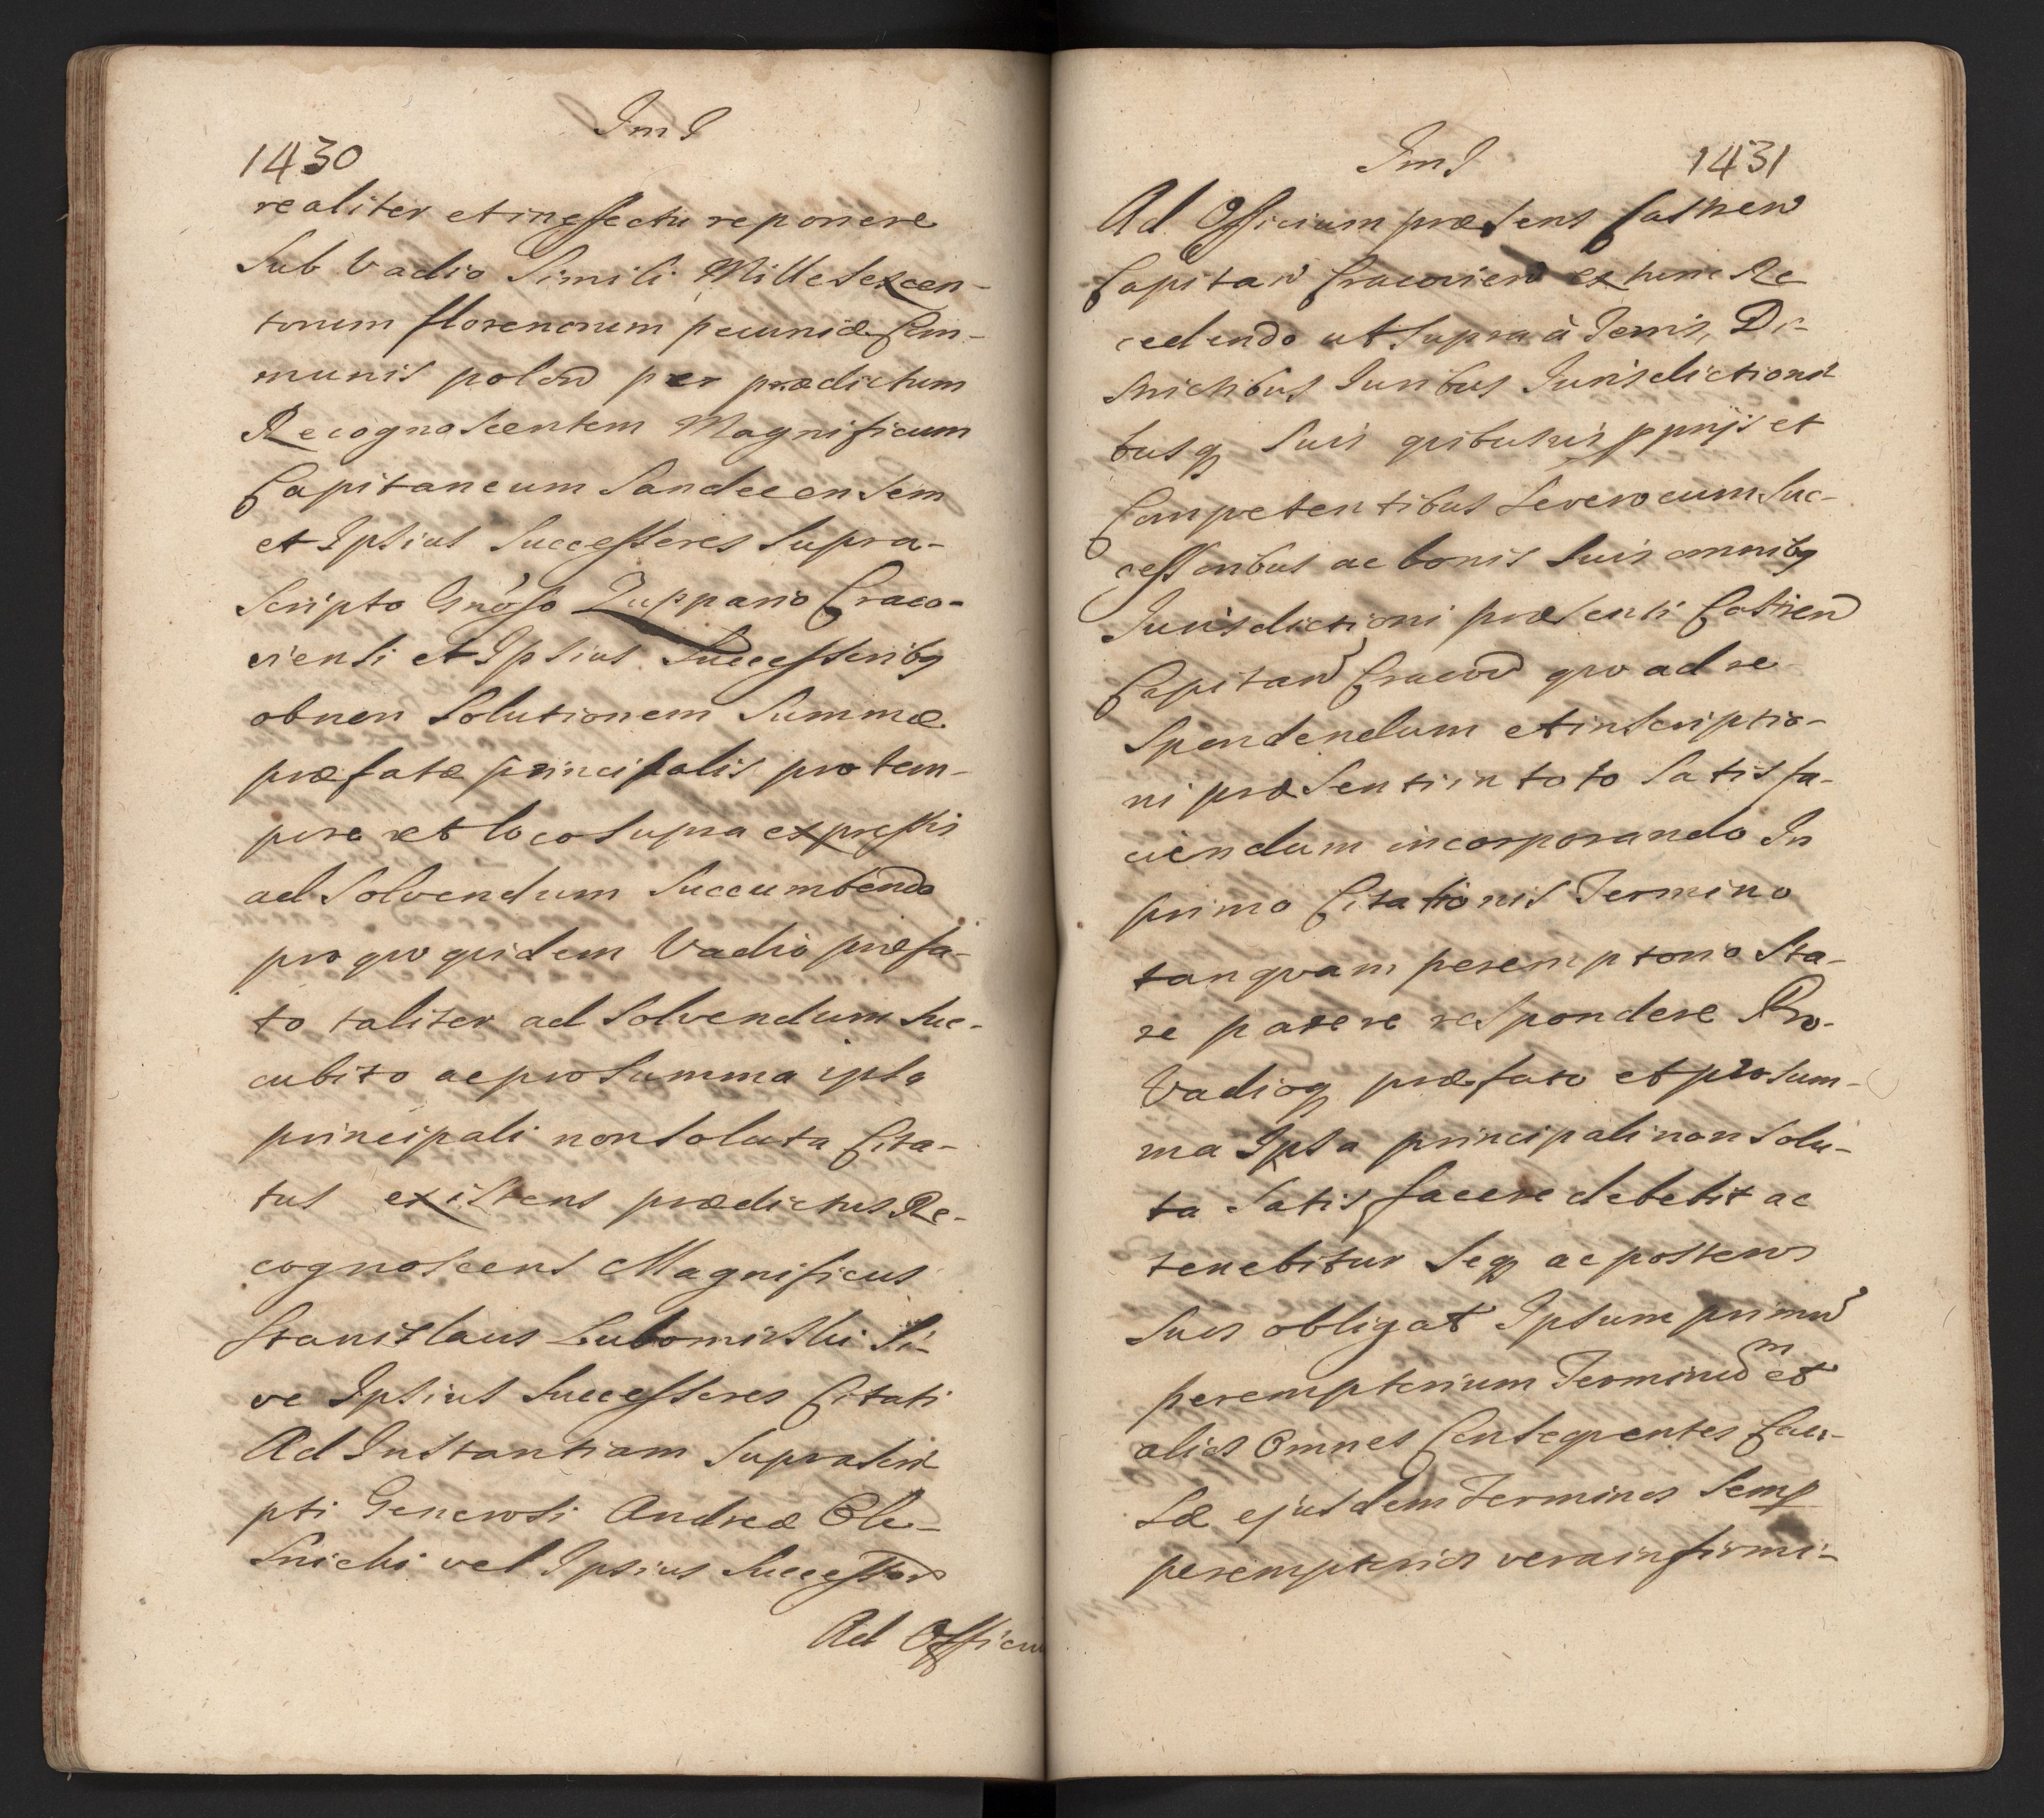 ImJ
1430
realiter et in effectu reponere
Sub Vadio Simili Mille Sexcen-
torum florenorum pecuniæ Com-
munis polon per prædictum
Recognoscentem Magnificum
Capitaneum Sandecensem
et Ipsius Successores Supra-
scripto Gnoso Zuppario Craco-
viensi et Ipsius Successoribq
ob non Solutionem Summæ
præfatæ principalis pro tem-
pore et loco supra expressis
ad Solvendum Succumbendo
pro quo quidem Vadio præfa-
to taliter ad Solvendum Suc-
cubito ac pro Summa ipsa
principali non Soluta Cita-
tus existens prædictus Re-
cognoscens Magnificus
Stanislaus Lubomirski Si-
ve Ipsius Successores Citati
Ad Instantiam Suprascri
pti Generosi Andreæ Ole-
snicki vel Ipsius Successor
Ad Officiu
ImJ 1431
Ad Officium præsens Castren
Capitan Cracovien ex tunc Re
cedendo ut Supra à Terris, Di-
strictibus Juribus Jurisdictioni
busq Suis quibusvis pprijs et
Competentibus Se vero cum Suc-
cessoribus ac bonis Suis omnibq
Jurisdictioni præsenti Castren
Capitan Cracov quo ad re-
spondendum et inscriptio-
ni præsenti in toto Satisfa-
ciendum incorporando In
primo Citationis Termino
tanquam peremptorio Sta-
re parere respondere Pro-
Vadioq præfato et pro Sum-
ma Ipsa principali non Solu-
ta Satisfacere debebit ac
tenebitur Seq ac posteros
Suos obligat Ipsum primu
peremptorium Terminum et
alios Omnes Consequentes Cau-
sæ ejusdem Terminos Semp
peremptorios vera infirmi-